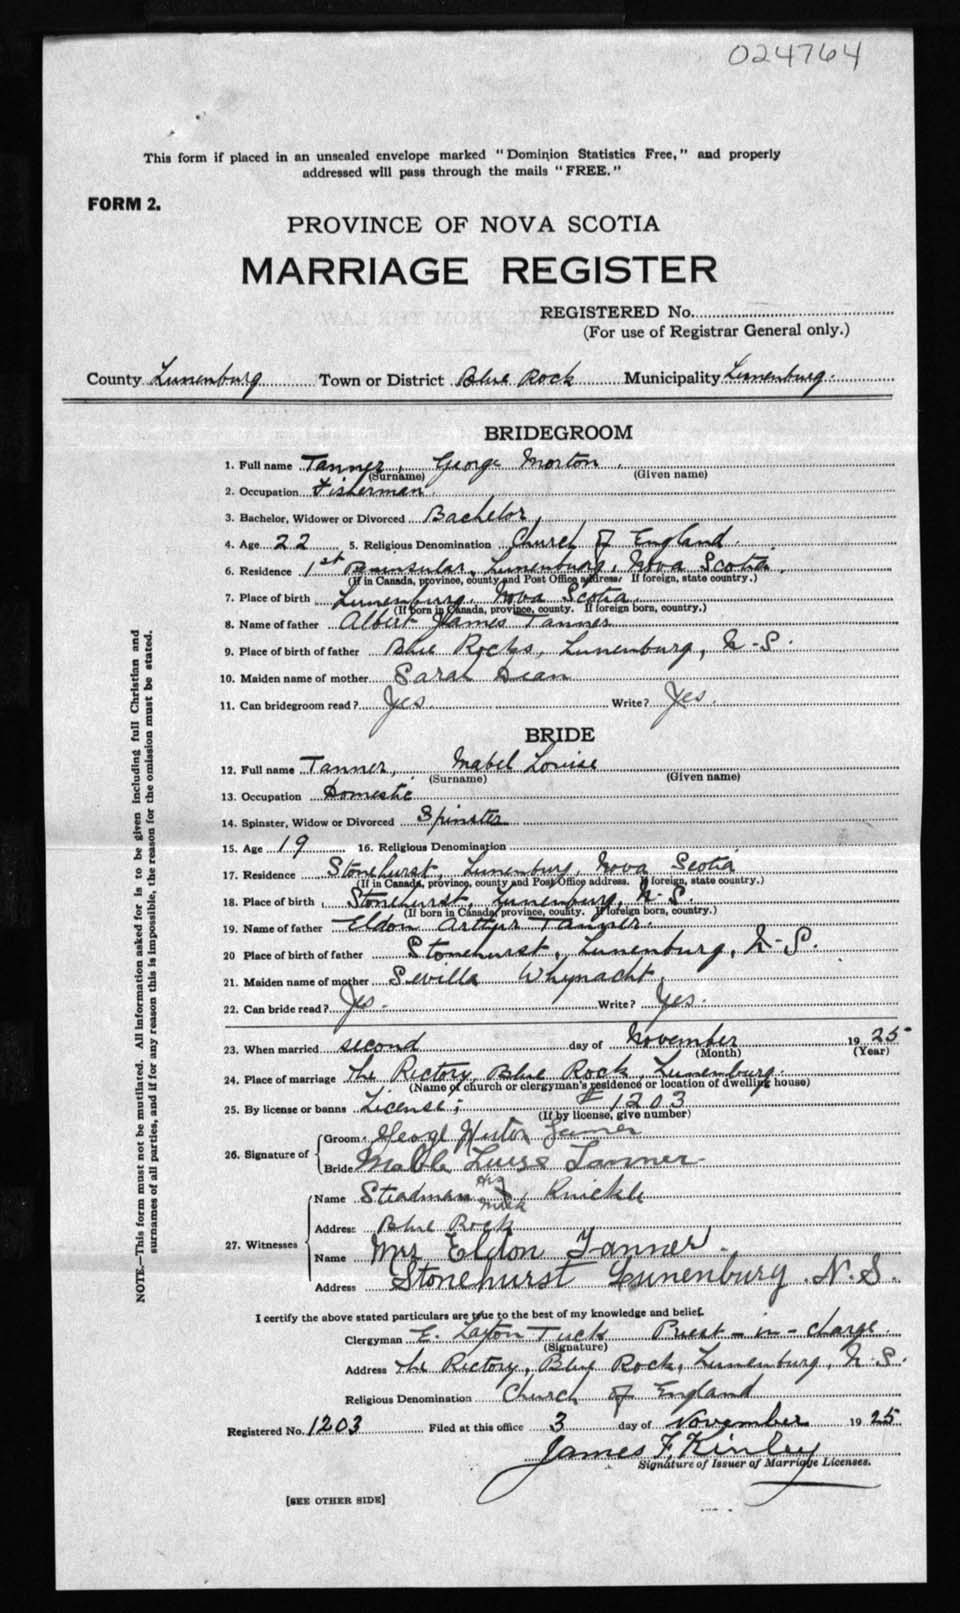 024764
This form if placed in an unsealed envelope marked "Dominion Statistics Free," and properly
addressed will pass through the mails "FREE."
FORM 2.
PROVINCE OF NOVA SCOTIA
MARRIAGE REGISTER
REGISTERED No.
(For use of Registrar General only.)
County Lunenburg Town or District Blue Rock Municipality Lunenburg.
BRIDEGROOM
1. Full name Tanner, George Morton.
(Surname) (Given name)
2. Occupation Fisherman.
3. Bachelor, Widower or Divorced Bachelor,
4. Age 22 5. Religious Denomination Church of England.
6. Residence 1st Peninsular, Lunenburg, Nova Scotia.
(If in Canada, province, county and Post Office address. If foreign, state country.)
7. Place of birth Lunenburg. Nova Scotia.
(If born in Canada, province, county. If foreign born, country.)
8. Name of father Albert James Tanner
9. Place of birth of father Blue Rocks, Lunenburg, N-S.
10. Maiden name of mother Sarah Dean
11. Can bridegroom read? Yes. Write? Yes.
BRIDE
12. Full name Tanner, Mabel Louise
(Surname) (Given name)
13. Occupation Domestic
14. Spinster, Widow or Divorced Spinster
15. Age 19 16. Religious Denomination
17. Residence Stonehurst, Lunenburg, Nova Scotia
(If in Canada, province, county and Post Office address. If foreign, state country.)
18. Place of birth Stonehurst, Lunenburg, N-S.
(If born in Canada, province, county. If foreign born, country.)
19. Name of father Eldon Arthur Tanner.
20 Place of birth of father Stonehurst, Lunenburg, N-S.
21. Maiden name of mother Sevilla Whynacht.
22. Can bride read? Yes. Write? Yes.
23. When married second day of November 1925
(Month) (Year)
24. Place of marriage The Rectory, Blue Rock, Lunenburg.
(Name of church or clergyman's residence or location of dwelling house)
25. By license or banns License; # 1203
(If by license, give number)
26. Signature of Groom George Tanner
Bride Mable Luise Tanner
27. Witnesses Name Steadman His X Mark Knickle
Address Blue Rock
Name Mrs Eldon Tanner.
Address Stonehurst Lunenburg. N. S.
I certify the above stated particulars are true to the best of my knowledge and belief.
Clergyman E. Layton Tuck Priest-in-charge.
(Signature)
Address The Rectory, Blue Rock, Lunenburg, N.S.
Religious Denomination Church of England
Registered No. 1203 Filed at this office 3 day of November 1925
James F. Kinley
Signature of Issuer of Marriage Licenses.
[SEE OTHER SIDE]
NOTE.—This form must not be mutilated. All information asked for is to be given including full Christian and
surnames of all parties, and if for any reason this is impossible, the reason for the omission must be stated.